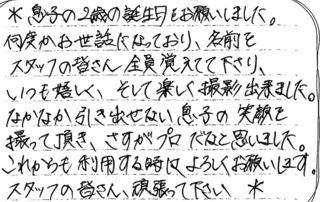 ＊息子の2歳の誕生日をお願いしました。
何度かお世話になっており、名前を
スタッフの皆さん全員覚えてて下さり、
いつも嬉しく、そして楽しく撮影出来ました。
なかなか引き出せない息子の笑顔を
撮って頂き、さすがプロだなと思いました。
これからも利用する時はよろしくお願いします。
スタッフの皆さん、頑張って下さい ＊